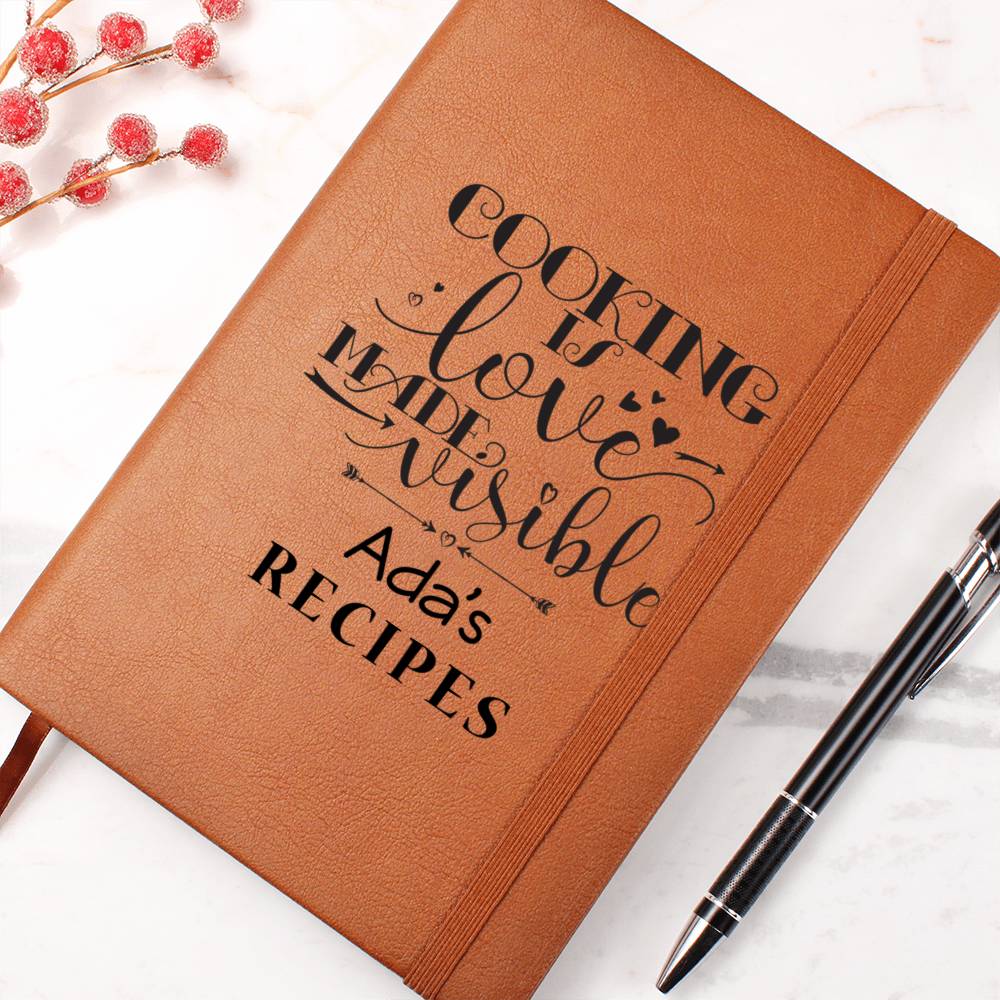 COOKING
IS
love
MADE
visible
Ada's
RECIPES